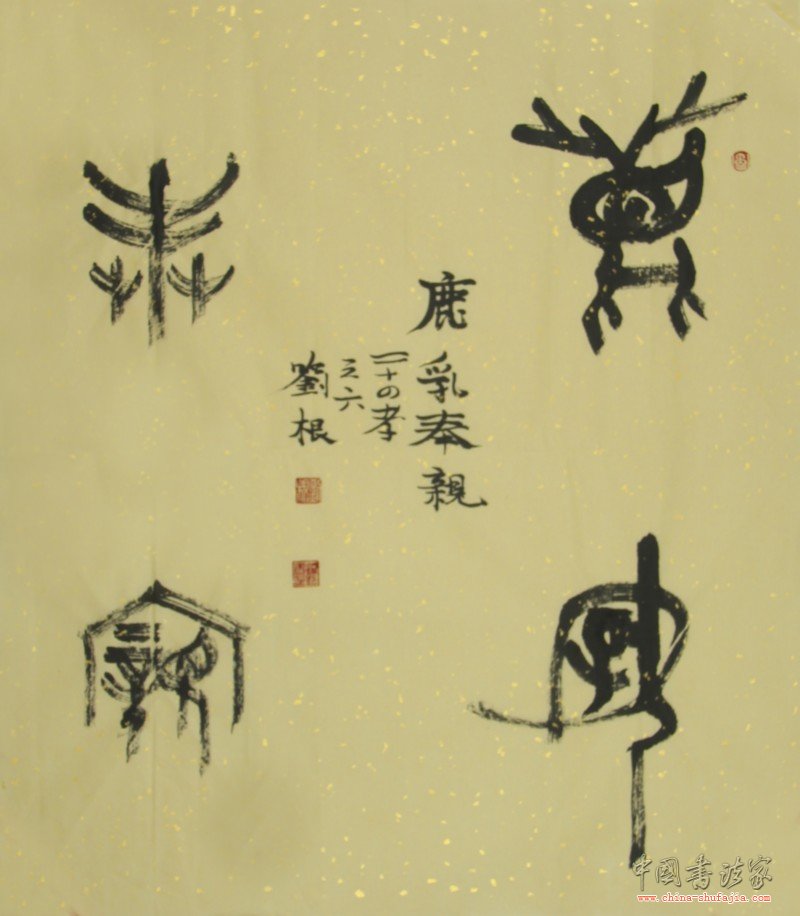 鹿乳
鹿乳奉親
二十四孝
之六
劉根
奉親
中國書法家
www.china-shufajia.com